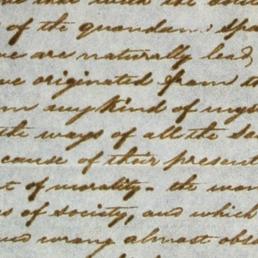 one that with the
of the quandam
we are naturally lead
ve originated from th
m any kind of mys
the ways of all the
cause of their present
t of morality - the wan
s of society, and which
wrong almost obs